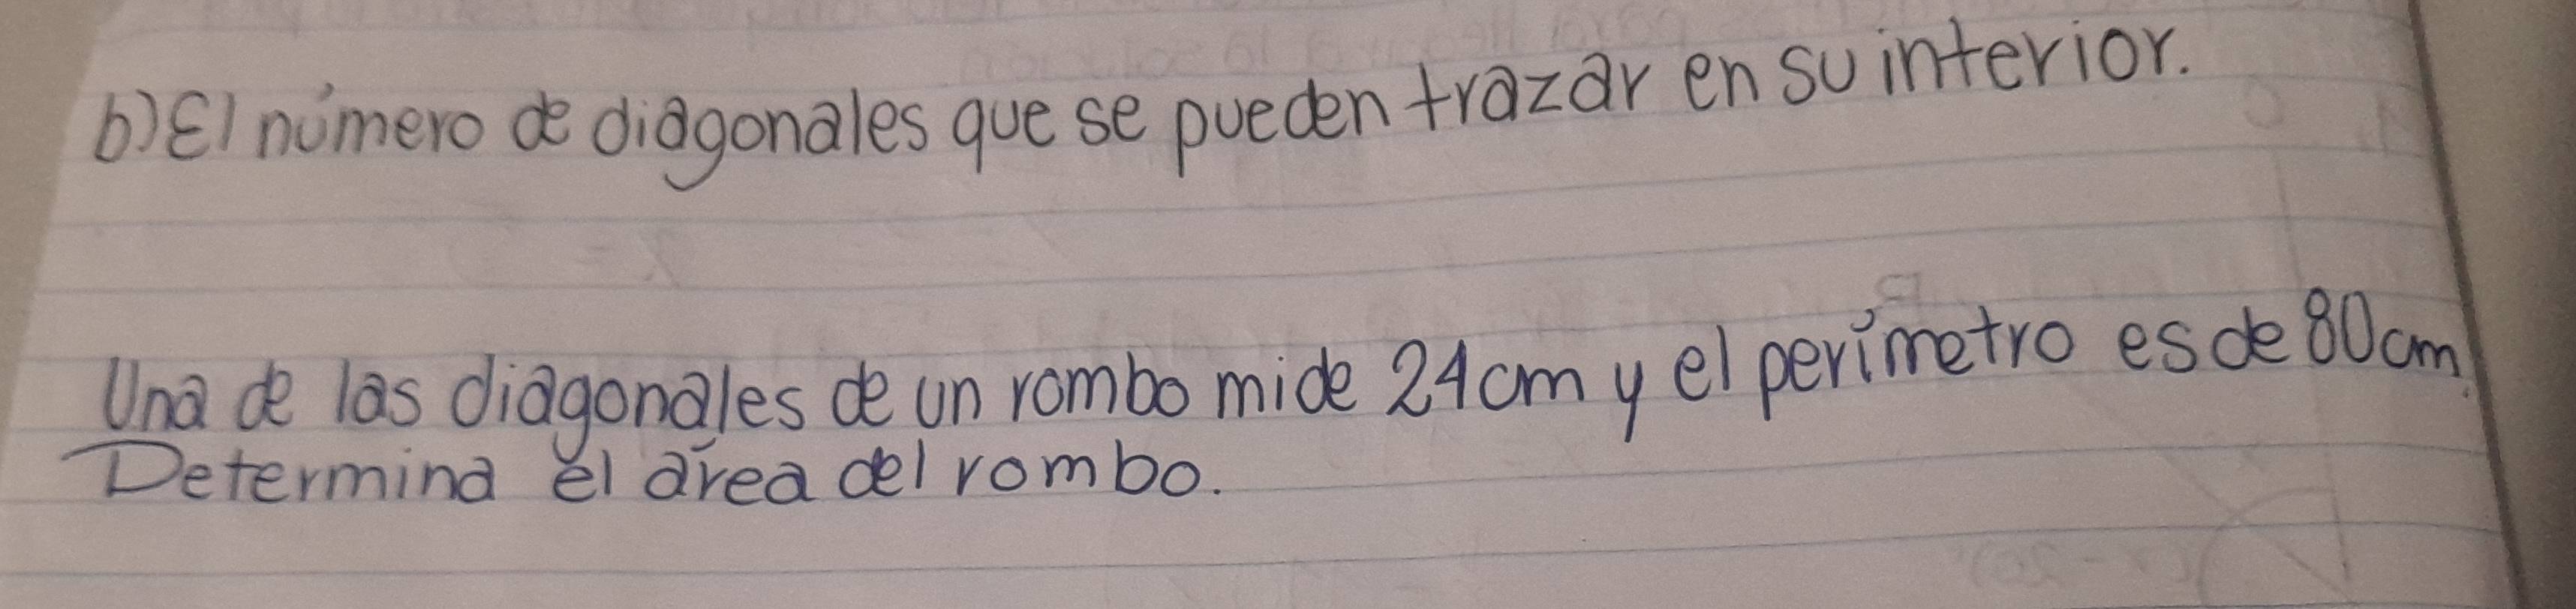 b) El número de diagonales que se pueden trazar en su interior.
Una de las diagonales de un rombo mide 24cm y el perímetro es de 80cm.
Determina el área del rombo.